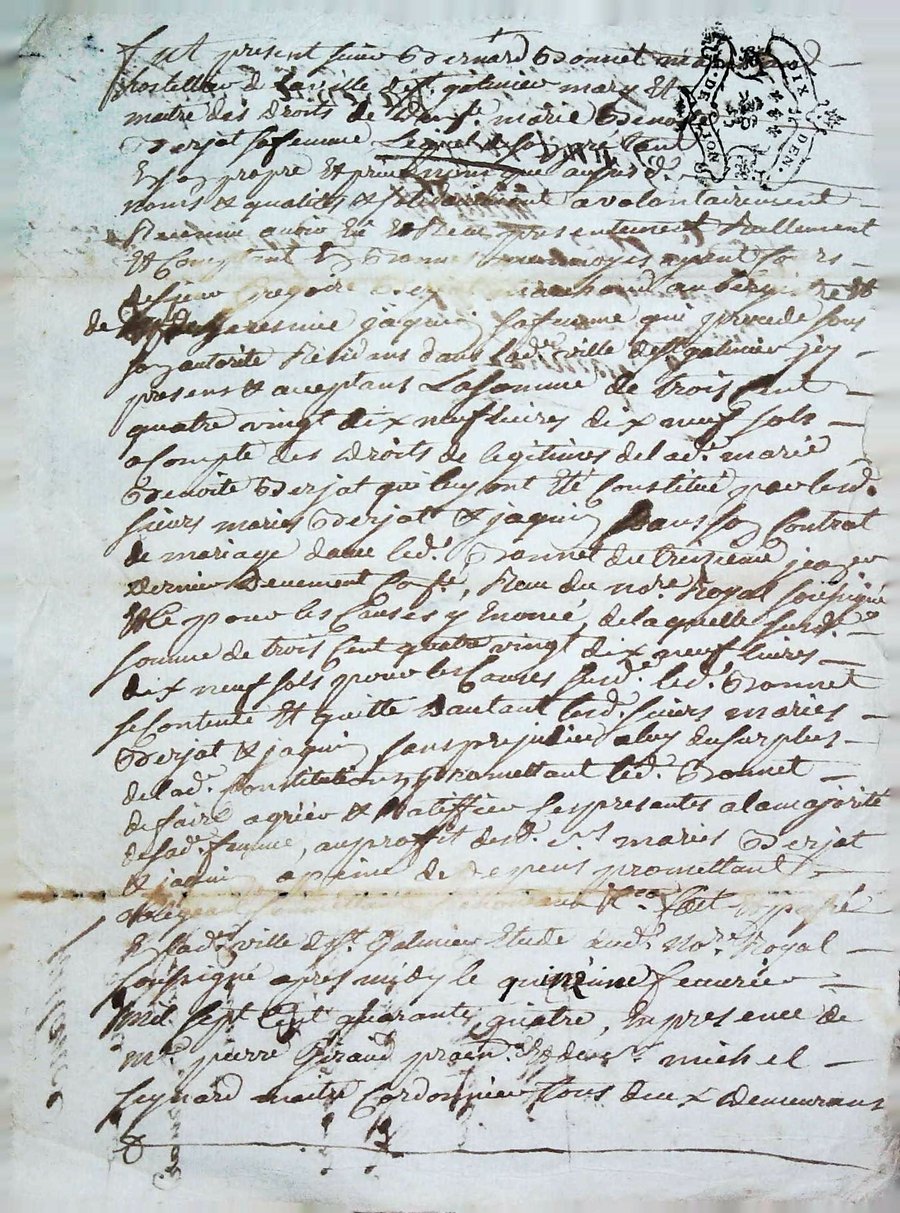 fut present sieur Bernard Bonnet md
hostellier de la ville de st. galmier mary et
maitre des droits de dam.lle marie Benoite
Berjat sa femme Lequel
En son propre et privé nom que aux susd.
noms et qualités et solidairement a volontairement
Reconnu avoir Eu et Receu presentement Reallement
Et Comptant En bonne monnoyes ayant cours
de sieur Gregoire Berjat marchand aubergiste et
de jaquin sa femme qui procede sous
son autorité Residans dans lad. ville de st. galmier jcy
presens et aceptans La somme de trois cent
quatre vingt dix neuf livres dix neuf sols
a Compte des droits de legitimes de lad. marie
Benoite Berjat qui luy ont Eté Constitué par lesd.
sieurs mariés Berjat et jaquin dans son Contrat
de mariage avec led. Bonnet du treizieme janver
dernier deuement Con.lé, Receu du no.re Royal soussigné
Et Ce pour les Causes y Enoncé, de laquelle susd.
somme de trois Cent quatre vingt dix neuf livres
dix neuf sols pour les Causes susd. led. Bonnet
se Contente Et quitte d'autant lesd. sieurs mariés
Berjat et jaquin sans prejudice a luy du surplus
de lad. Constitution promettant led. Bonnet
de faire agréer et Ratiffier ses presentes a la majorité
de sad. femme, au proffit desd. s.rs mariés Berjat
et jaquin a peine de depens promettant
obligeant soumettant Renonceant &ca fait et passé
En lad. ville de st. Galmier Etude dud. no.re Royal
soussigné apres midy le quinzieme fevrier
mil sept Cent quarante quatre, En presence de
m.e pierre Giraud et de s.r michel
maitre Cordonnier tous deux demeurans
DE NOT
DIX DEN.